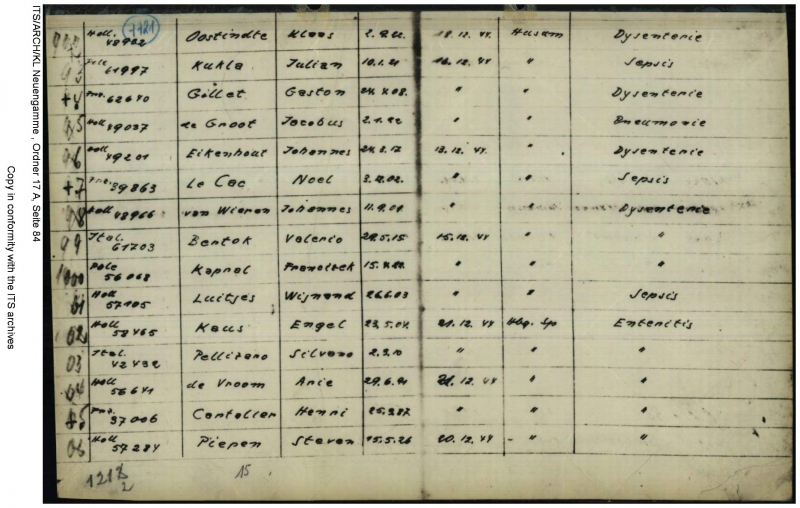 ITS/ARCH/KL Neuengamme, Ordner 17 A, Seite 84
Copy in conformity with the ITS archives
Holl. 48902 Oostindte Klaas 18.12.44 Husum Dysenterie
Pole 61997 Kukla Julian 10.1.21 16.12.44 " Sepsis
Frz. 62640 Gillet Gaston 24.4.08. " " Dysenterie
95 Holl 49037 de Groot Jacobus 2.1.22 " " Pneumonie
96 Holl 49201 Eikenhout Johannes 24.8.17 13.12.44. " Dysenterie
+7 Frz. 39863 Le Cac Noel 3.12.02. " " Sepsis
98 Holl 48966 van Wieren Johannes 11.9.01 " " Dysenterie
99 Ital. 61703 Bertok Valerio 29.5.15 15.12.44 " "
1000 Pole 56068 Kapral " " "
01 Holl 57105 Luitjes Wijnand 26.6.03 " " Sepsis
02 Holl 58465 Kaus Engel 23.5.04 21.12.44 Hbg. Sp Enteritis
03 Ital. 42432 Pellizaro Silvano 2.3.10 " " "
04 Holl 56641 de Vroom Arie 29.6.21 21.12.44 " "
+5 Frz. 37006 Cantelier Henri " " "
06 Holl 57284 Pieper Steven 15.5.26 20.12.44 - " "
15